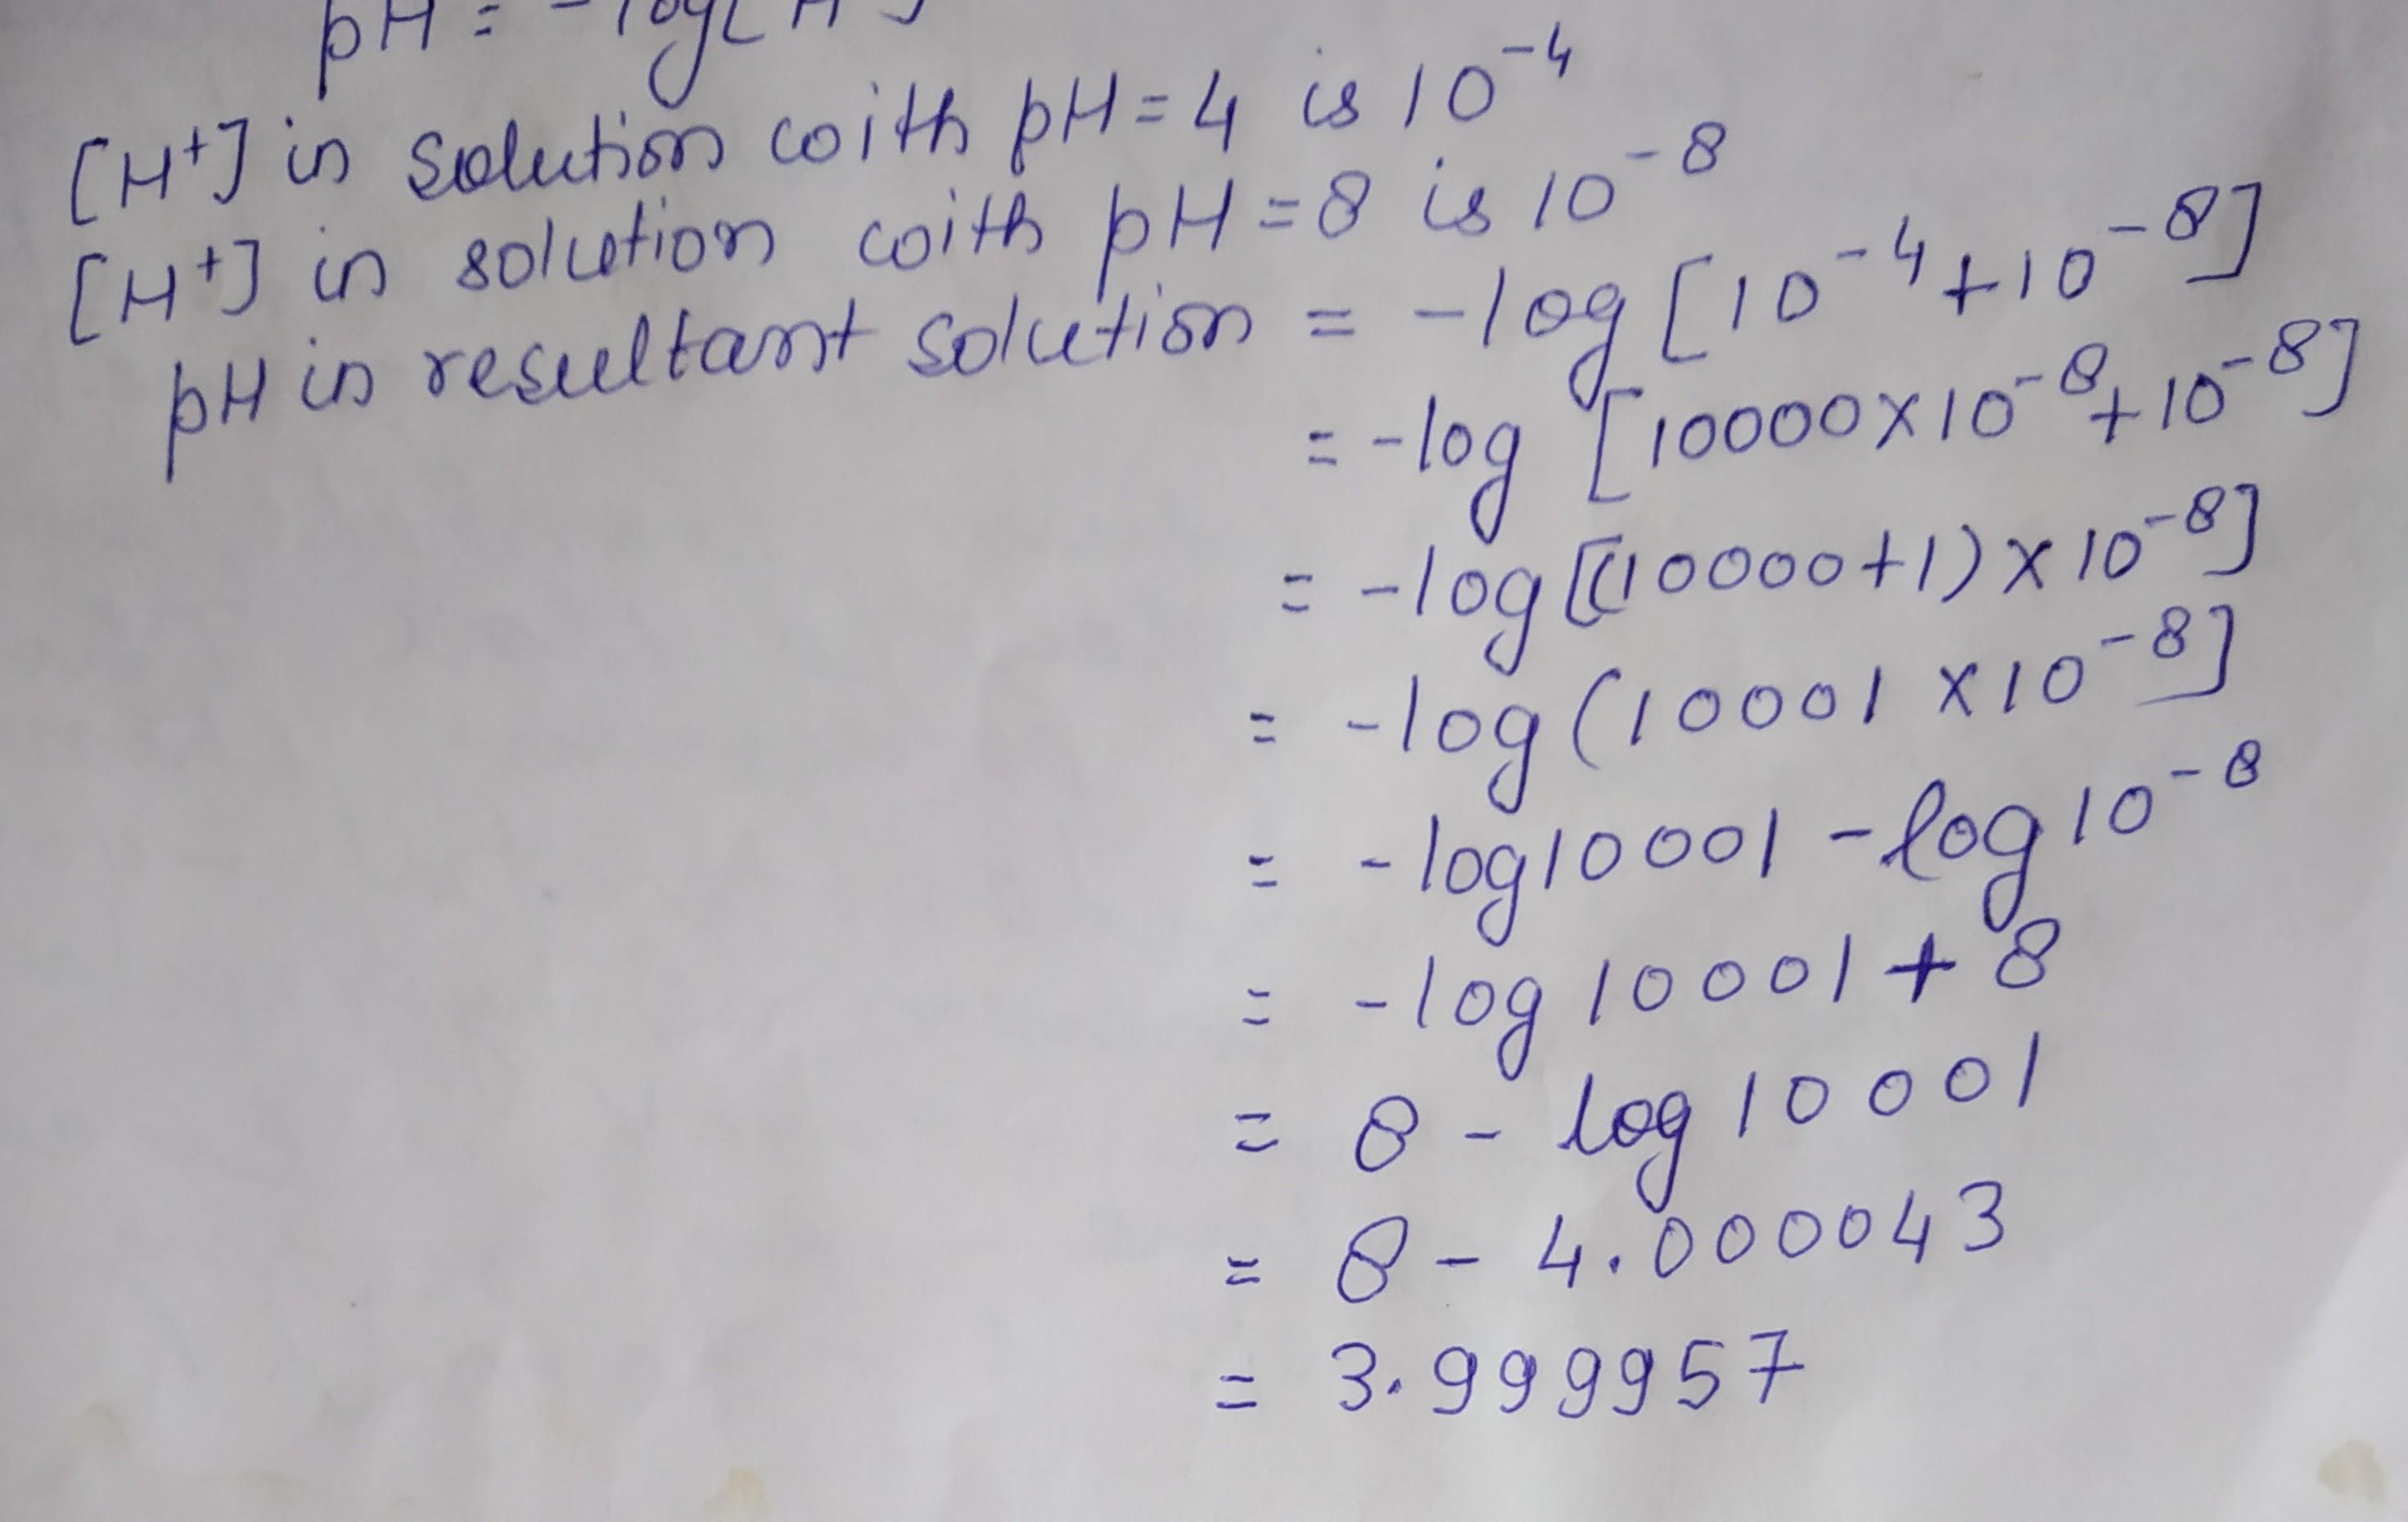 pH = -log[H
[H⁺] in solution with pH = 4 is 10⁻⁴
[H⁺] in solution with pH = 8 is 10⁻⁸
pH in resultant solution = -log[10⁻⁴+10⁻⁸]
= -log [10000×10⁻⁸+10⁻⁸]
= -log[(10000+1)×10⁻⁸]
= -log(10001×10⁻⁸]
= -log10001 - log10⁻⁸
= -log10001 + 8
= 8 - log10001
= 8 - 4.000043
= 3.999957